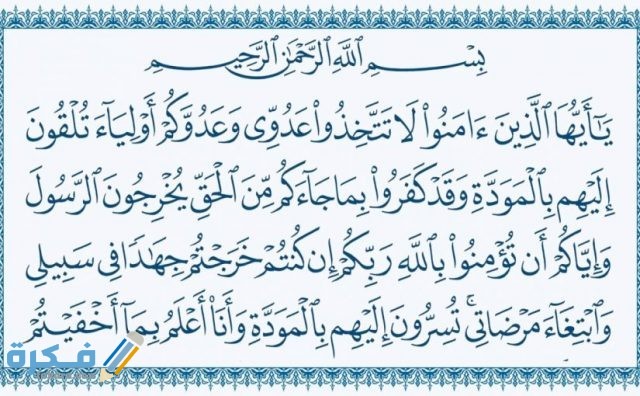 بِسْمِ ٱللَّهِ ٱلرَّحْمَٰنِ ٱلرَّحِيمِ
يَٰٓأَيُّهَا ٱلَّذِينَ ءَامَنُوا۟ لَا تَتَّخِذُوا۟ عَدُوِّى وَعَدُوَّكُمْ أَوْلِيَآءَ تُلْقُونَ
إِلَيْهِم بِٱلْمَوَدَّةِ وَقَدْ كَفَرُوا۟ بِمَا جَآءَكُم مِّنَ ٱلْحَقِّ يُخْرِجُونَ ٱلرَّسُولَ
وَإِيَّاكُمْ أَن تُؤْمِنُوا۟ بِٱللَّهِ رَبِّكُمْ إِن كُنتُمْ خَرَجْتُمْ جِهَٰدًا فِى سَبِيلِى
وَٱبْتِغَآءَ مَرْضَاتِى ۚ تُسِرُّونَ إِلَيْهِم بِٱلْمَوَدَّةِ وَأَنَا۠ أَعْلَمُ بِمَآ أَخْفَيْتُمْ
فكرة